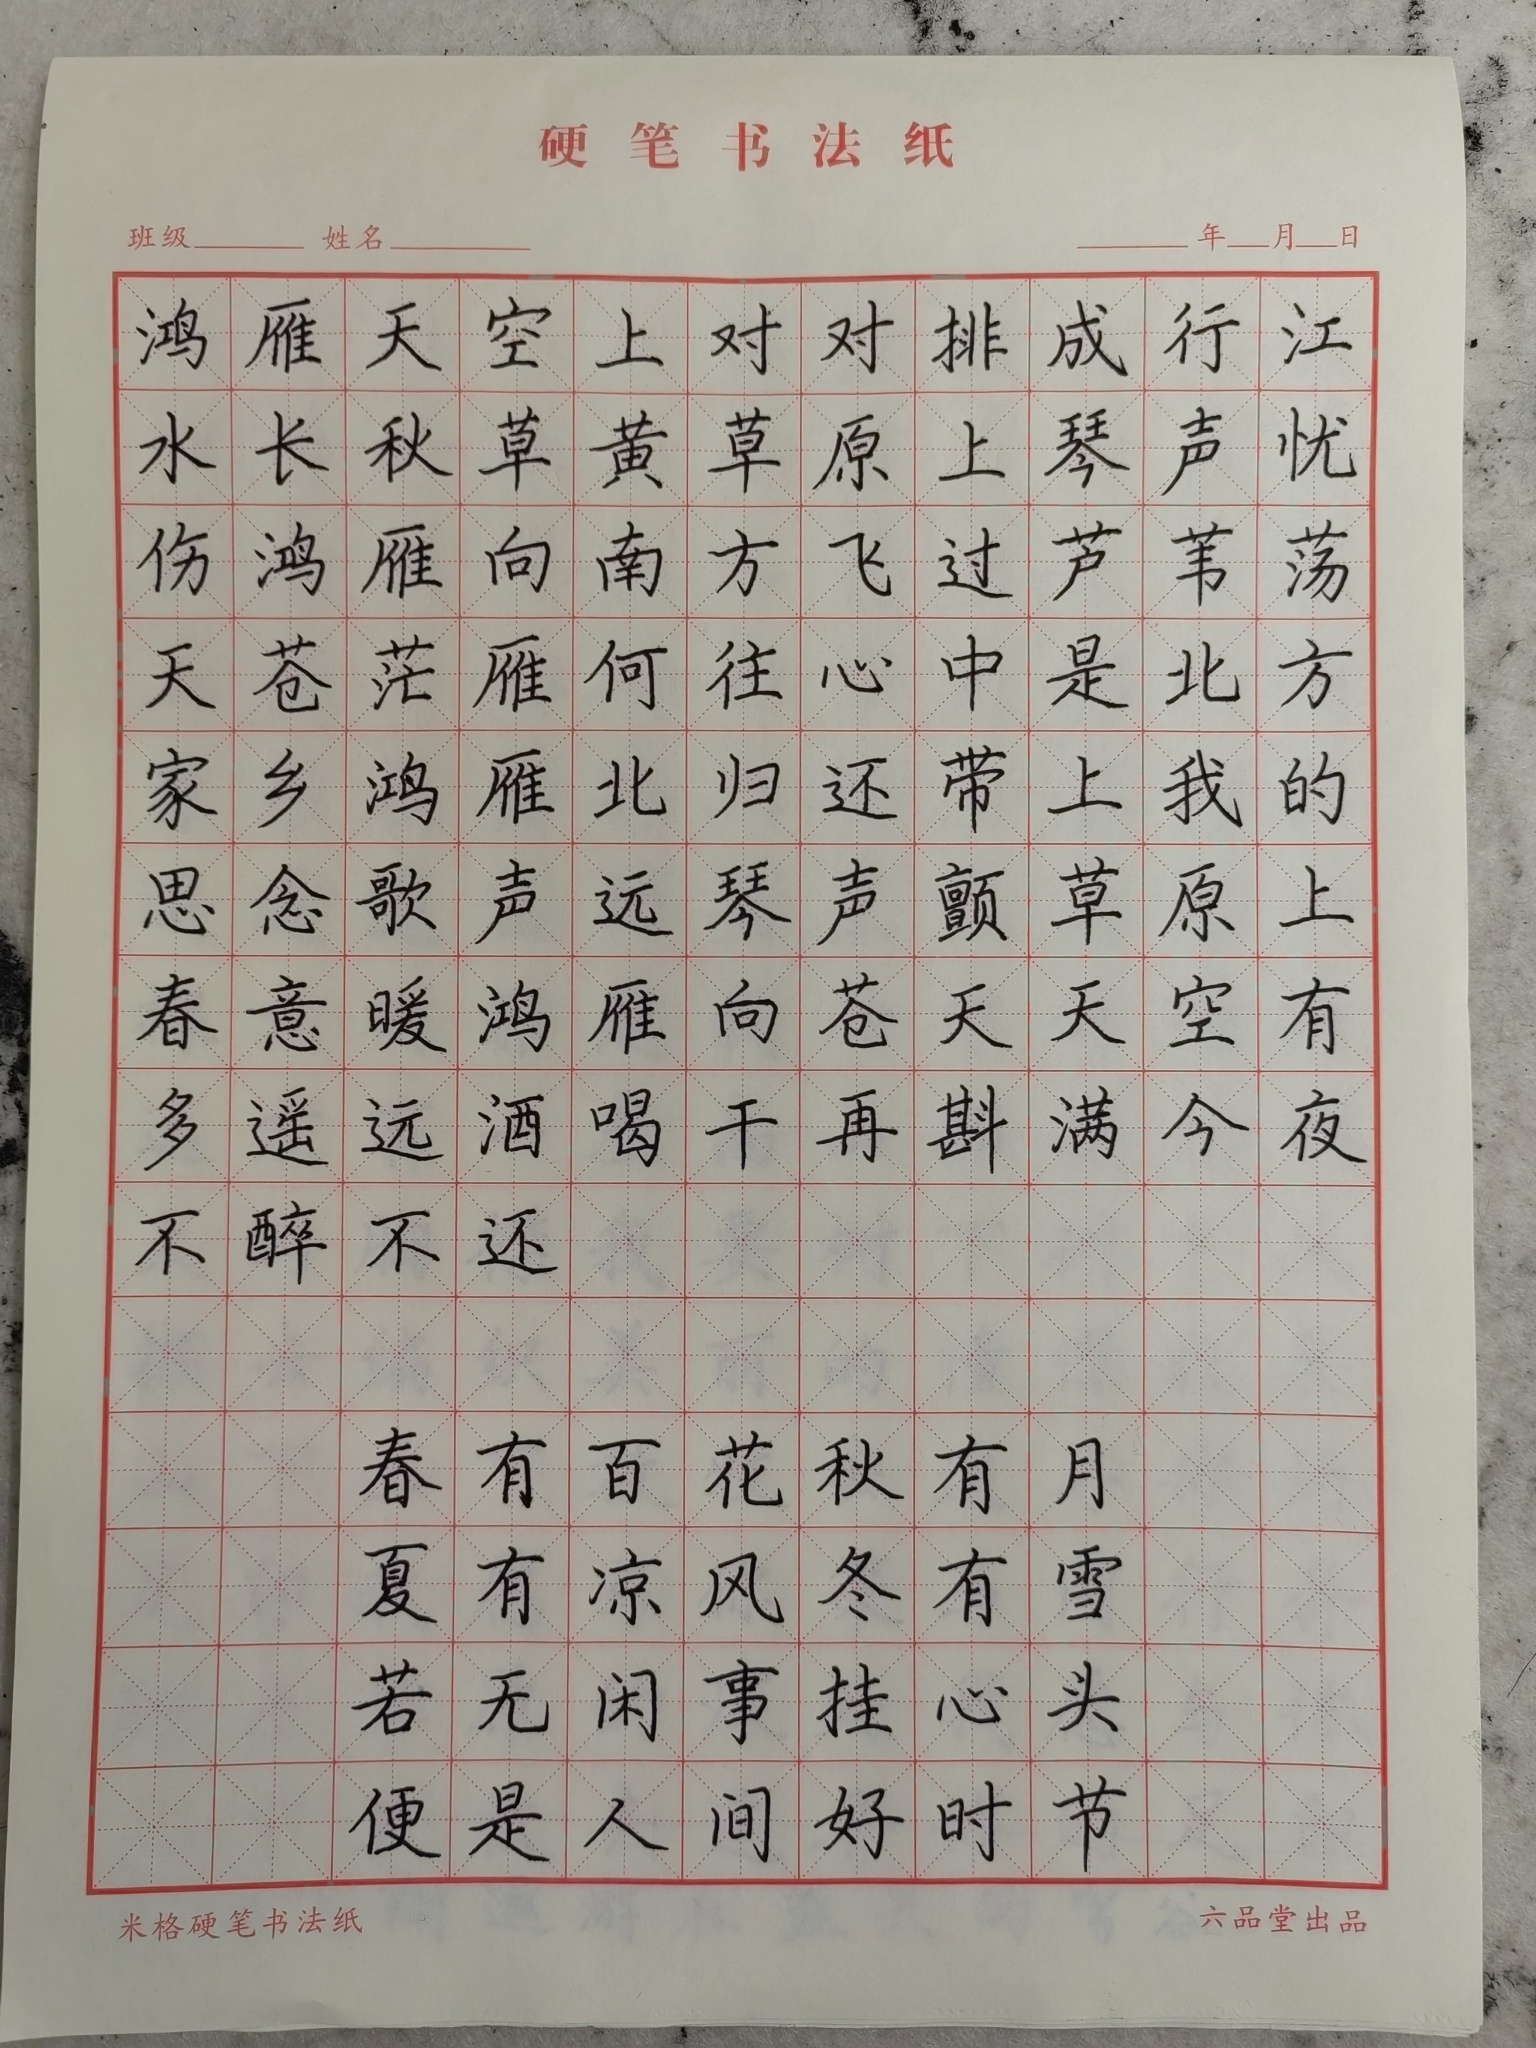 硬笔书法纸
班级 姓名 年 月 日
鸿雁天空上对对排成行江
水长秋草黄草原上琴声忧
伤鸿雁向南方飞过芦苇荡
天苍茫雁何往心中是北方
家乡鸿雁北归还带上我的
思念歌声远琴声颤草原上
春意暖鸿雁向苍天天空有
多遥远酒喝干再斟满今夜
不醉不还
春有百花秋有月
夏有凉风冬有雪
若无闲事挂心头
便是人间好时节
米格硬笔书法纸 六品堂出品